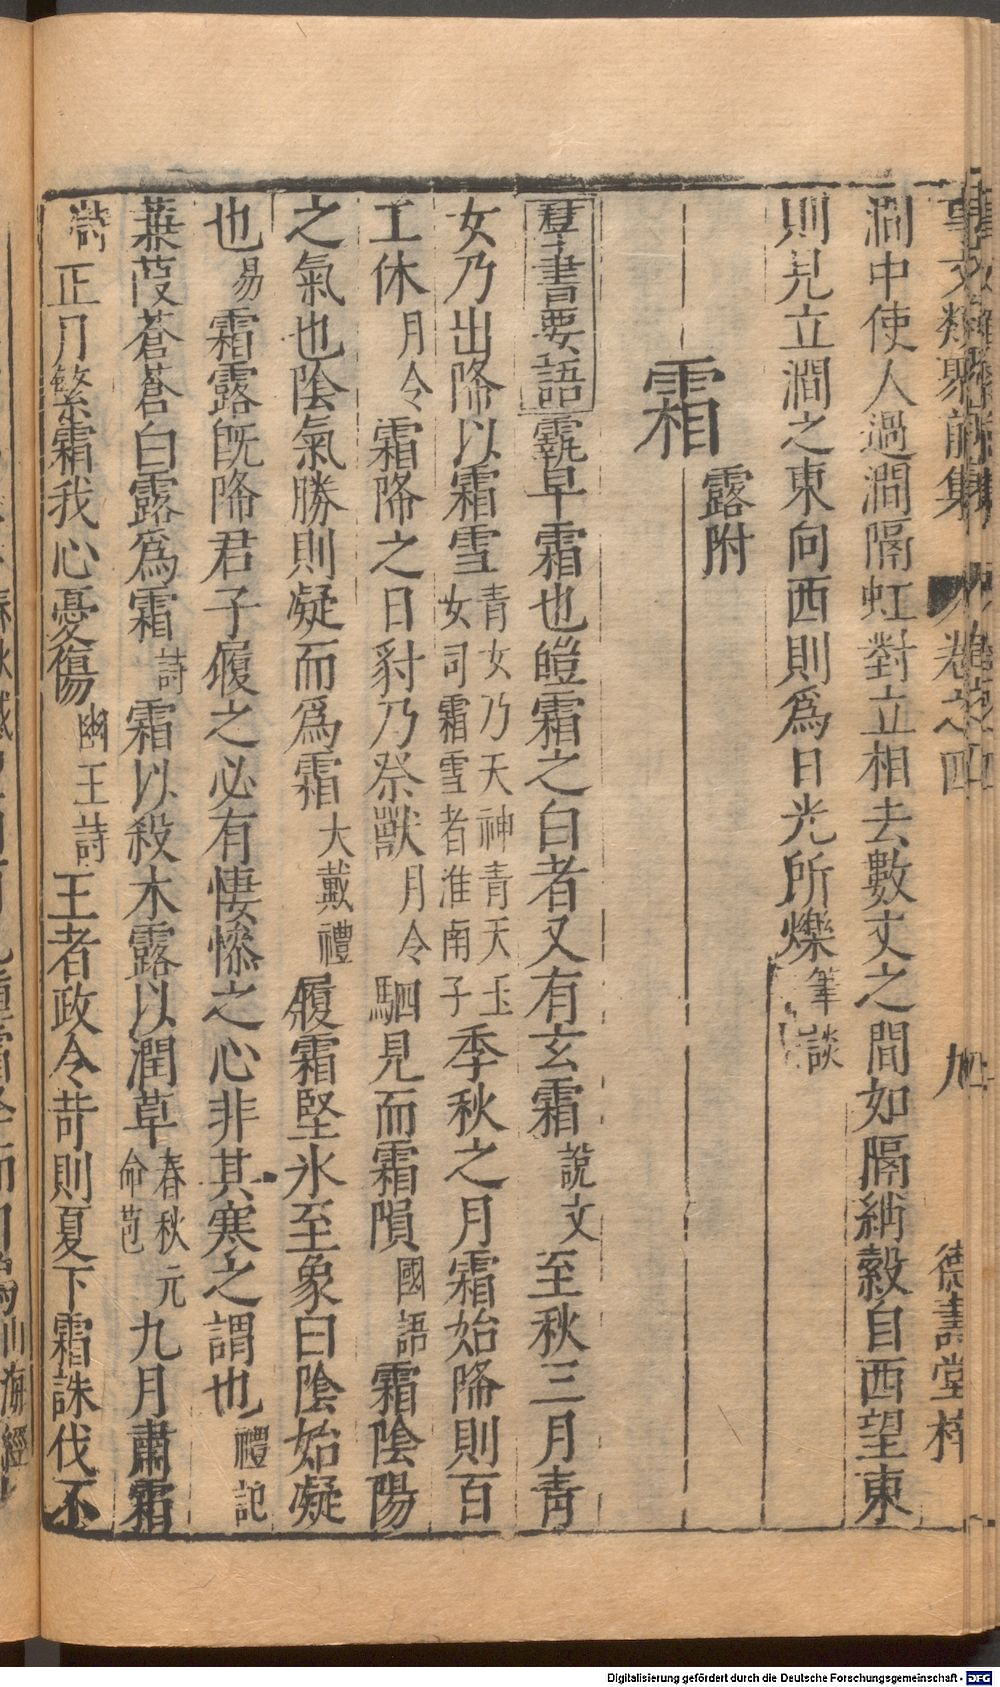 事文類聚前集 卷之四 九 德壽堂梓
澗中使人過澗隔虹對立相去數丈之間如隔綃縠自西望東
則見立澗之東向西則爲日光所爍筆談
霜 露附
羣書要語 霚早霜也皚霜之白者又有玄霜說文至秋三月青
女乃出降以霜雪青女乃天神青天玉女司霜雪者淮南子季秋之月霜始降則百
工休月令霜降之日豺乃祭獸月令駟見而霜隕國語霜陰陽
之氣也陰氣勝則凝而爲霜大戴禮履霜堅冰至象曰陰始凝
也易霜露旣降君子履之必有悽愴之心非其寒之謂也禮記
蒹葭蒼蒼白露爲霜詩霜以殺木露以潤草春秋元命苞九月肅霜
正月繁霜我心憂傷幽王詩王者政令苛則夏下霜誅伐不
Digitalisierung gefördert durch die Deutsche Forschungsgemeinschaft - DFG